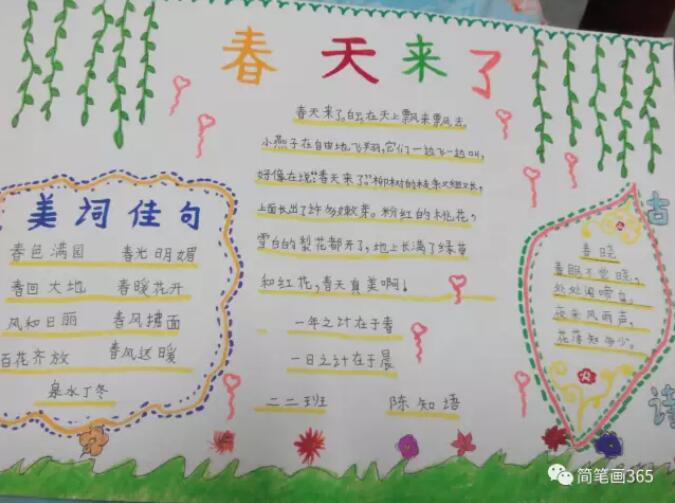 春天来了
春天来了,白云在天上飘来飘去。
小燕子在自由地飞翔,它们一边飞一边叫,
好像在说“春天来了”柳树的枝条又细又长,
上面长出了许多嫩芽。粉红的桃花,
雪白的梨花都开了,地上长满了绿草
和红花,春天真美啊!
一年之计在于春
一日之计在于晨
二二班 陈知语
美词佳句
春色满园 春光明媚
春回大地 春暖花开
风和日丽 春风拂面
百花齐放 春风送暖
泉水丁冬
古诗
春晓
春眠不觉晓,
处处闻啼鸟。
夜来风雨声,
花落知多少。
简笔画365